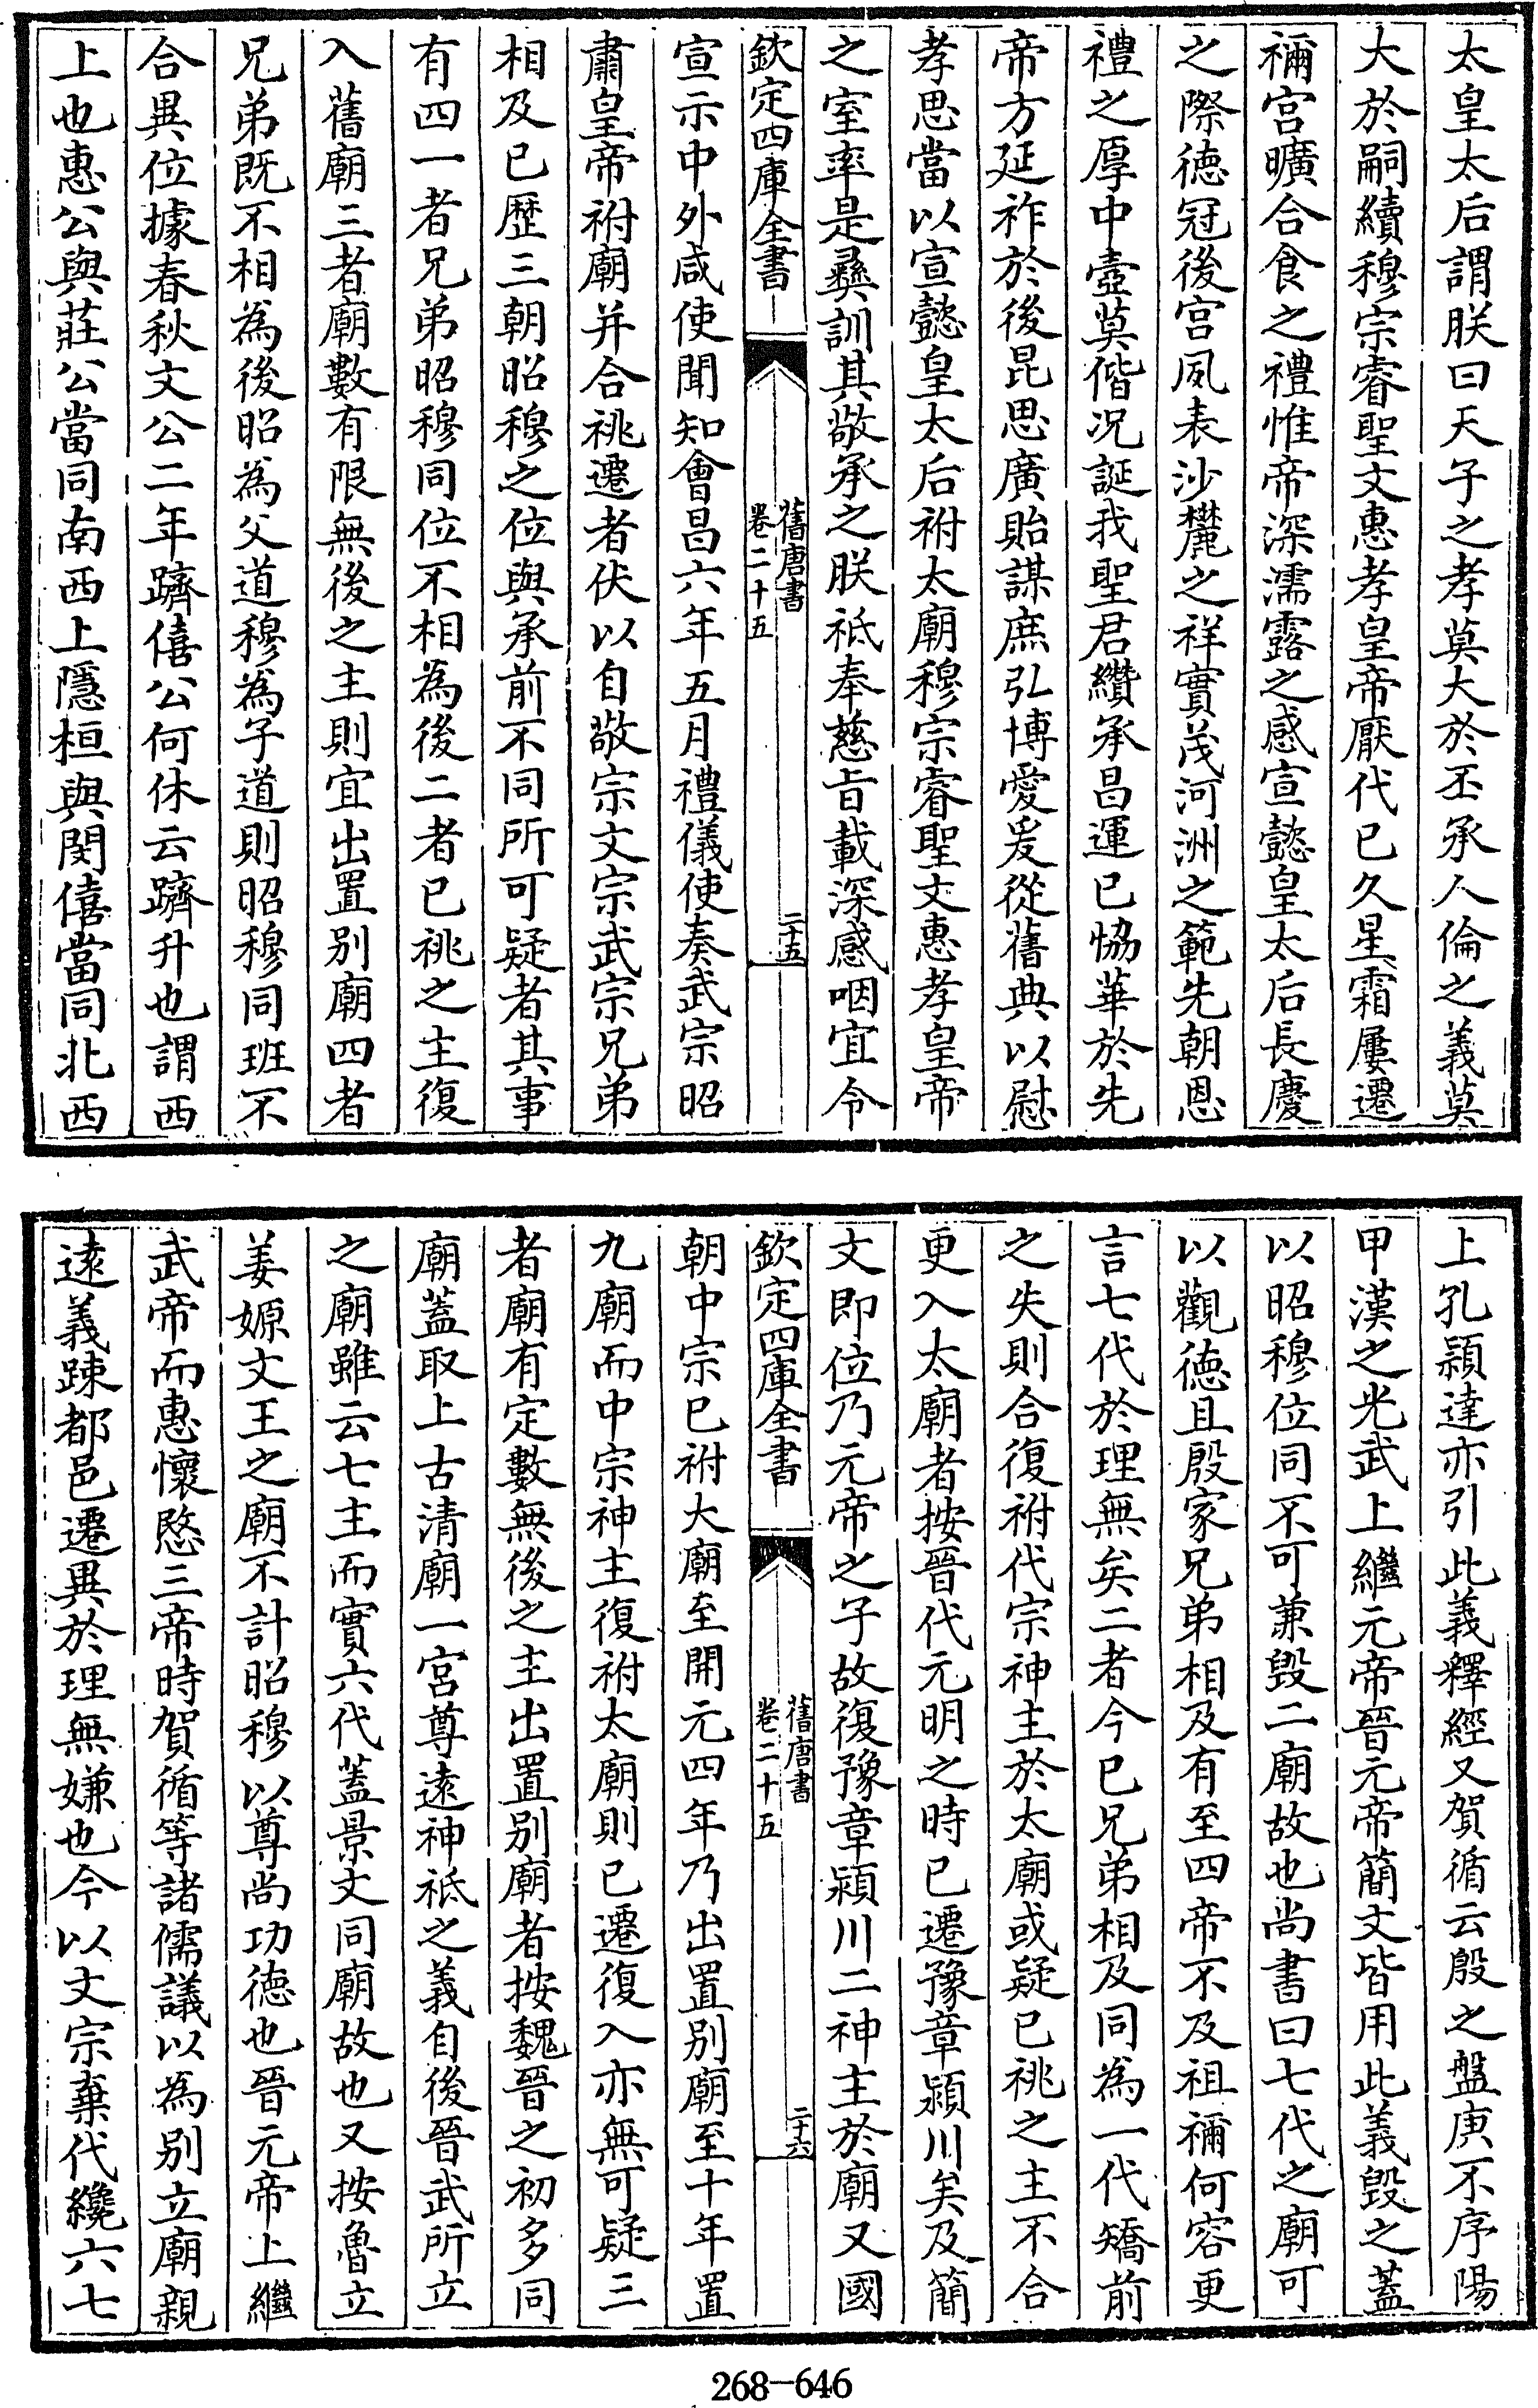 太皇太后謂朕曰天子之孝莫大於丕承人倫之義莫
大於嗣續穆宗睿聖文惠孝皇帝厭代已久星霜屢遷
禰宫曠合食之禮惟帝深濡露之感宣懿皇太后長慶
之際徳冠後宫夙表沙麓之祥實茂河洲之範先朝恩
禮之厚中壼莫偕况誕我聖君纘承昌運已恊華於先
帝方延祚於後昆思廣貽謀庶弘博愛爰從舊典以慰
孝思當以宣懿皇太后祔太廟穆宗睿聖文惠孝皇帝
之室率是彞訓其敬承之朕祗奉慈㫖載深感咽宜令
欽定四庫全書
舊唐書
卷二十五
二十五
宣示中外咸使聞知會昌六年五月禮儀使奏武宗昭
肅皇帝祔廟并合祧遷者伏以自敬宗文宗武宗兄弟
相及已歴三朝昭穆之位與承前不同所可疑者其事
有四一者兄弟昭穆同位不相為後二者已祧之主復
入舊廟三者廟數有限無後之主則宜出置别廟四者
兄弟既不相為後昭為父道穆為子道則昭穆同班不
合異位據春秋文公二年躋僖公何休云躋升也謂西
上也惠公與莊公當同南西上隱桓與閔僖當同北西
上孔頴達亦引此義釋經又賀循云殷之盤庚不序陽
甲漢之光武上繼元帝晉元帝簡文皆用此義毁之蓋
以昭穆位同不可兼毁二廟故也尚書曰七代之廟可
以觀徳且殷家兄弟相及有至四帝不及祖禰何容更
言七代於理無矣二者今已兄弟相及同為一代矯前
之失則合復祔代宗神主於太廟或疑已祧之主不合
更入太廟者按晉代元明之時已遷豫章潁川矣及簡
文即位乃元帝之子故復豫章潁川二神主於廟又國
欽定四庫全書
舊唐書
卷二十五
二十六
朝中宗已祔大廟至開元四年乃出置别廟至十年置
九廟而中宗神主復祔太廟則已遷復入亦無可疑三
者廟有定數無後之主出置别廟者按魏晉之初多同
廟蓋取上古清廟一宫尊遠神祗之義自後晉武所立
之廟雖云七主而實六代蓋景文同廟故也又按魯立
姜嫄文王之廟不計昭穆以尊尚功徳也晉元帝上繼
武帝而惠懷愍三帝時賀循等諸儒議以為别立廟親
遠義踈都邑遷異於理無嫌也今以文宗棄代纔六七
268-646